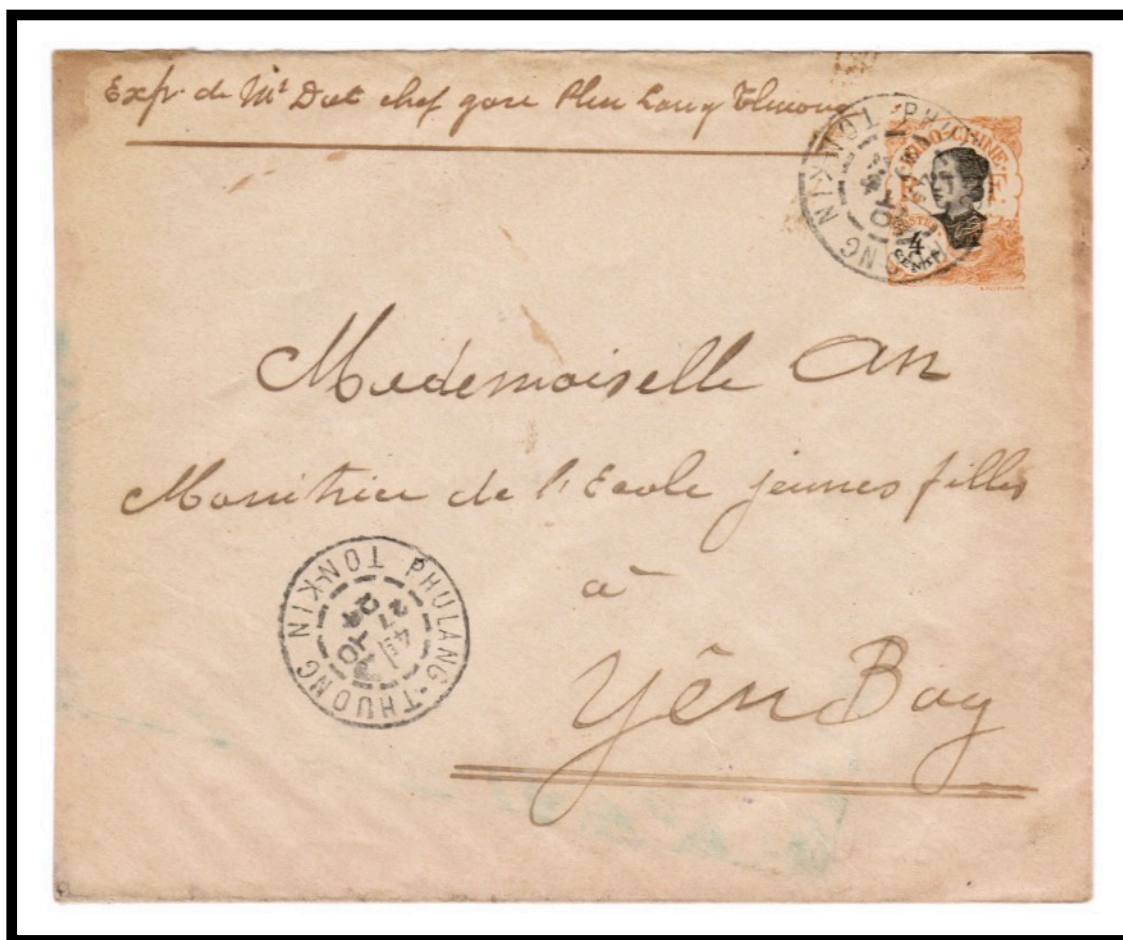 Exp. de Mr Dat chef gare Phu Lang Thuong
INDO-CHINE
R F
4
CENTS
Mademoiselle An
Monitrice de l'Ecole jeunes filles
à
Yên Bay
PHULANG-THUONG TONKIN
27
OCT
24